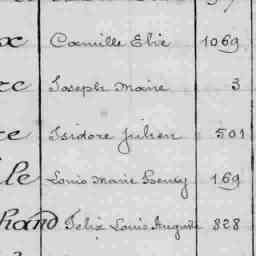 x Camille Elie 1069
Joseph Marie 3
Isidore Julien 501
lle Louis Marie 169
hand Felix Louis Auguste 828